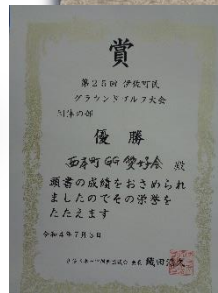 賞
第25回 伊佐町民
グラウンドゴルフ大会
団体の部
優勝
西本町GG愛好会 殿
頭書の成績をおさめられ
ましたのでその栄誉を
たたえます
令和4年7月3日
会長